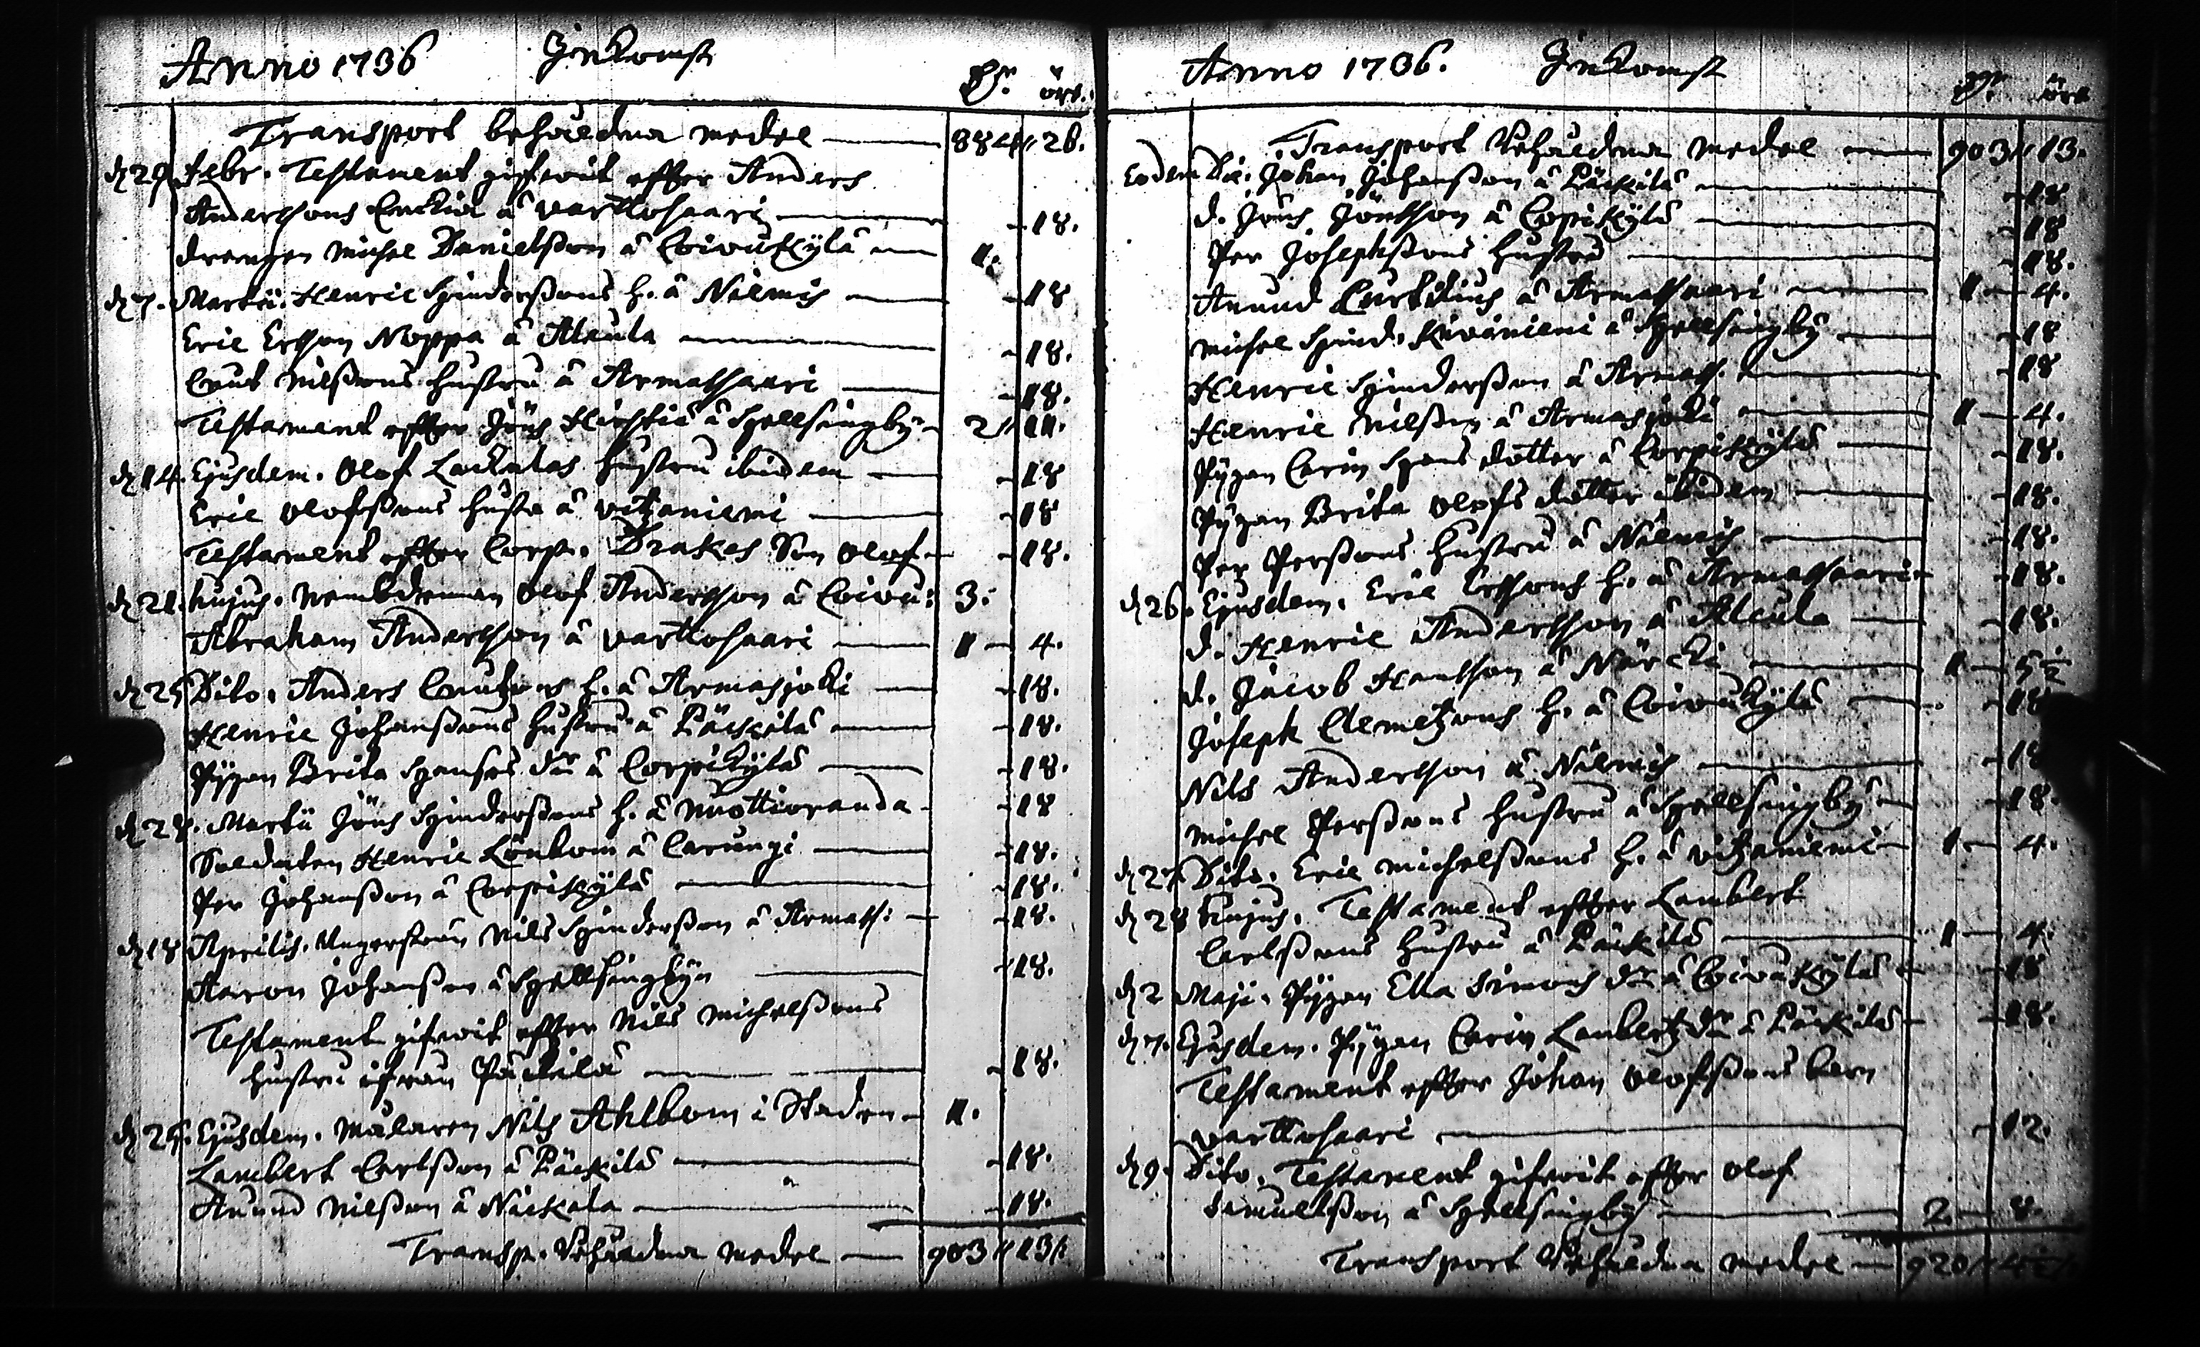 Anno 1736 Inkomst
Dr. öre.
Transport behåldna medel — 884 26.
d 29 Febr. Testament gifwit effter Anders
Andersons Enckia å Vartkosaari — 18.
drengen Michel Danielsson å Coivukÿlä — 1.
d 7. Martii. Henric Hindersons h. å Niemis — 18
Eric Ersson Noppa å Alcula — 18.
Cnut Nilssons hustru å Armassaari — 18.
Testament effter Jöns Kirstiä å Hellsingbÿ — 2 11.
d 14. Ejusdem. Olof Lackalas hustru ibidem — 18
Eric Olofssons hustr å Vitzaniemi — 18
Testament effter Corp. Drakes Son Olof — 18.
d 21. hujus. Nembdeman Olof Andersson å Coivu: 3.
Abraham Andersson å Vartkosaari — 1 — 4.
d 25 Dito. Anders Cnutzons h. å Armasjocki — 18.
Henric Johanssons hustru å Päckilä — 18.
Pÿgan Brita Hansses dr å Corpikÿlä — 18.
d 28. Martii Jöns Hinderssons h. å Nuottioranda — 18
Soldaten Henric Lönbom å Carungi — 18.
Per Johansson å Corpikÿlä — 18.
d 18 Aprilis. Ungersven Nils Hindersson å Armass: — 18.
Aaron Johansson å Hellsingbÿn — 18.
Testament gifwit effter Nils Michelssons
hustru ifrån Päckilä — 18.
d 25. Ejusdem. Målaren Nils Ahlbom i Staden — 1.
Lambert Carlsson å Päckilä — 18.
Anund Nilsson å Näckala — 18.
Transp. behåldna medel — 903 13
Anno 1736. Inkomst
Dr. öre
Transport behåldna medel — 903 13.
Eodem Die. Johan Johansson å Päckilä — 18
d. Jöns Jönsson å Corpikÿlä — 18
Per Josephssons hustru — 18.
Anund Curtilius å Armassaari — 1 — 4.
Michel Hind. Kiviniemi å Hellsingbÿ — 18
Henric Hindersson å Armass. — 18
Henric Nilsson å Armasjocki — 1 — 4.
Pÿgan Carin Hans dotter å Corpikÿlä — 18.
Pÿgan Brita Olofs dotter ibidem — 18.
Per Perssons hustru å Niemis — 18.
d 26. Ejusdem. Eric Erssons h. å Armassaari — 18.
d. Henric Andersson å Alcula — 18.
d. Jacob Hansson å Närcki — 1 — 5½
Joseph Clemetzons h. å Coivukÿlä — 18
Nils Andersson å Niemis — 18
Michel Perssons hustru å Hellsingbÿ — 18.
d 27 Dito. Eric Michelssons h. å Vitzaniemi — 1 — 4.
d 28 hujus. Testament effter Lambert
Carlssons hustru å Päckilä — 1 — 4.
d 2 Maji. Pÿgan Ella Simons dr å Coivukÿlä — 18
d 7. Ejusdem. Pÿgan Carin Lambertz dr å Päckilä — 18.
Testament effter Johan Olofssons barn
Vartkosaari — 12.
d 9. Dito. Testament gifwit effter Olof
Samuelsson å Hellsingbÿ — 2 — 8.
Transport behåldna medel — 920